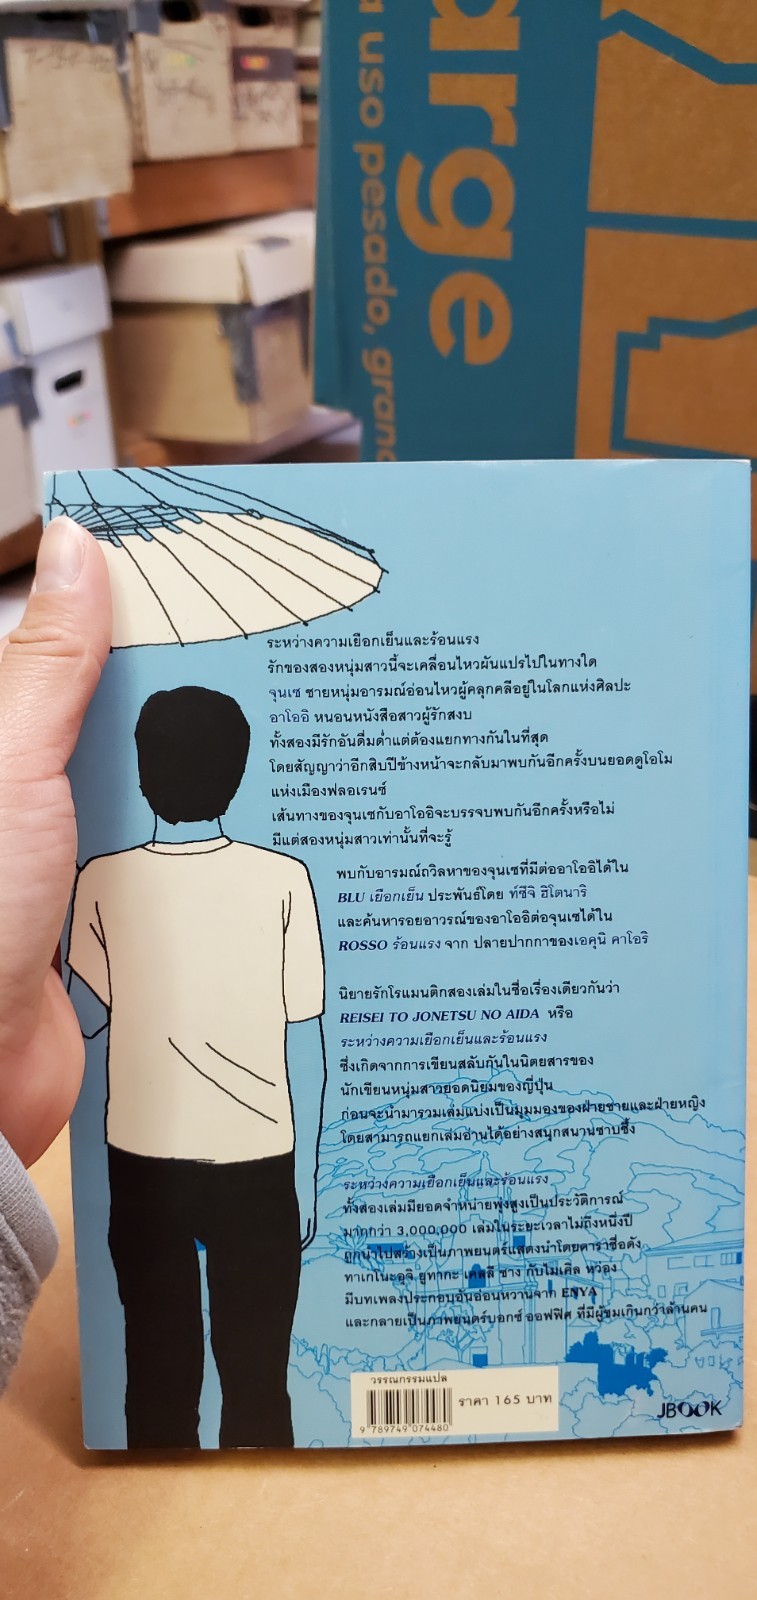 arge
a uso pesado, grand
ระหว่างความเยือกเย็นและร้อนแรง
รักของสองหนุ่มสาวนี้จะเคลื่อนไหวผันแปรไปในทางใด
จุนเซ ชายหนุ่มอารมณ์อ่อนไหวผู้คลุกคลีอยู่ในโลกแห่งศิลปะ
อาโออิ หนอนหนังสือสาวผู้รักสงบ
ทั้งสองมีรักอันดื่มด่ำแต่ต้องแยกทางกันในที่สุด
โดยสัญญาว่าอีกสิบปีข้างหน้าจะกลับมาพบกันอีกครั้งบนยอดดูโอโม
แห่งเมืองฟลอเรนซ์
เส้นทางของจุนเซกับอาโออิจะบรรจบพบกันอีกครั้งหรือไม่
มีแต่สองหนุ่มสาวเท่านั้นที่จะรู้
พบกับอารมณ์ถวิลหาของจุนเซที่มีต่ออาโออิได้ใน
BLU เยือกเย็น ประพันธ์โดย ท์ซึจิ ฮิโตนาริ
และค้นหารอยอาวรณ์ของอาโออิต่อจุนเซได้ใน
ROSSO ร้อนแรง จาก ปลายปากกาของเอคุนิ คาโอริ
นิยายรักโรแมนติกสองเล่มในชื่อเรื่องเดียวกันว่า
REISEI TO JONETSU NO AIDA หรือ
ระหว่างความเยือกเย็นและร้อนแรง
ซึ่งเกิดจากการเขียนสลับกันในนิตยสารของ
นักเขียนหนุ่มสาวยอดนิยมของญี่ปุ่น
ก่อนจะนำมารวมเล่มแบ่งเป็นมุมมองของฝ่ายชายและฝ่ายหญิง
โดยสามารถแยกเล่มอ่านได้อย่างสนุกสนานซาบซึ้ง
ระหว่างความเยือกเย็นและร้อนแรง
ทั้งสองเล่มมียอดจำหน่ายพุ่งสูงเป็นประวัติการณ์
มากกว่า 3,000,000 เล่มในระยะเวลาไม่ถึงหนึ่งปี
ถูกนำไปสร้างเป็นภาพยนตร์แสดงนำโดยดาราชื่อดัง
ทาเกโนะอุจิ ยูทากะ เคลลี ชาง กับไมเคิล หว่อง
มีบทเพลงประกอบอันอ่อนหวานจาก ENYA
และกลายเป็นภาพยนตร์บอกซ์ ออฟฟิศ ที่มีผู้ชมเกินกว่าล้านคน
วรรณกรรมแปล
ราคา 165 บาท
9 789749 074480
JBOOK